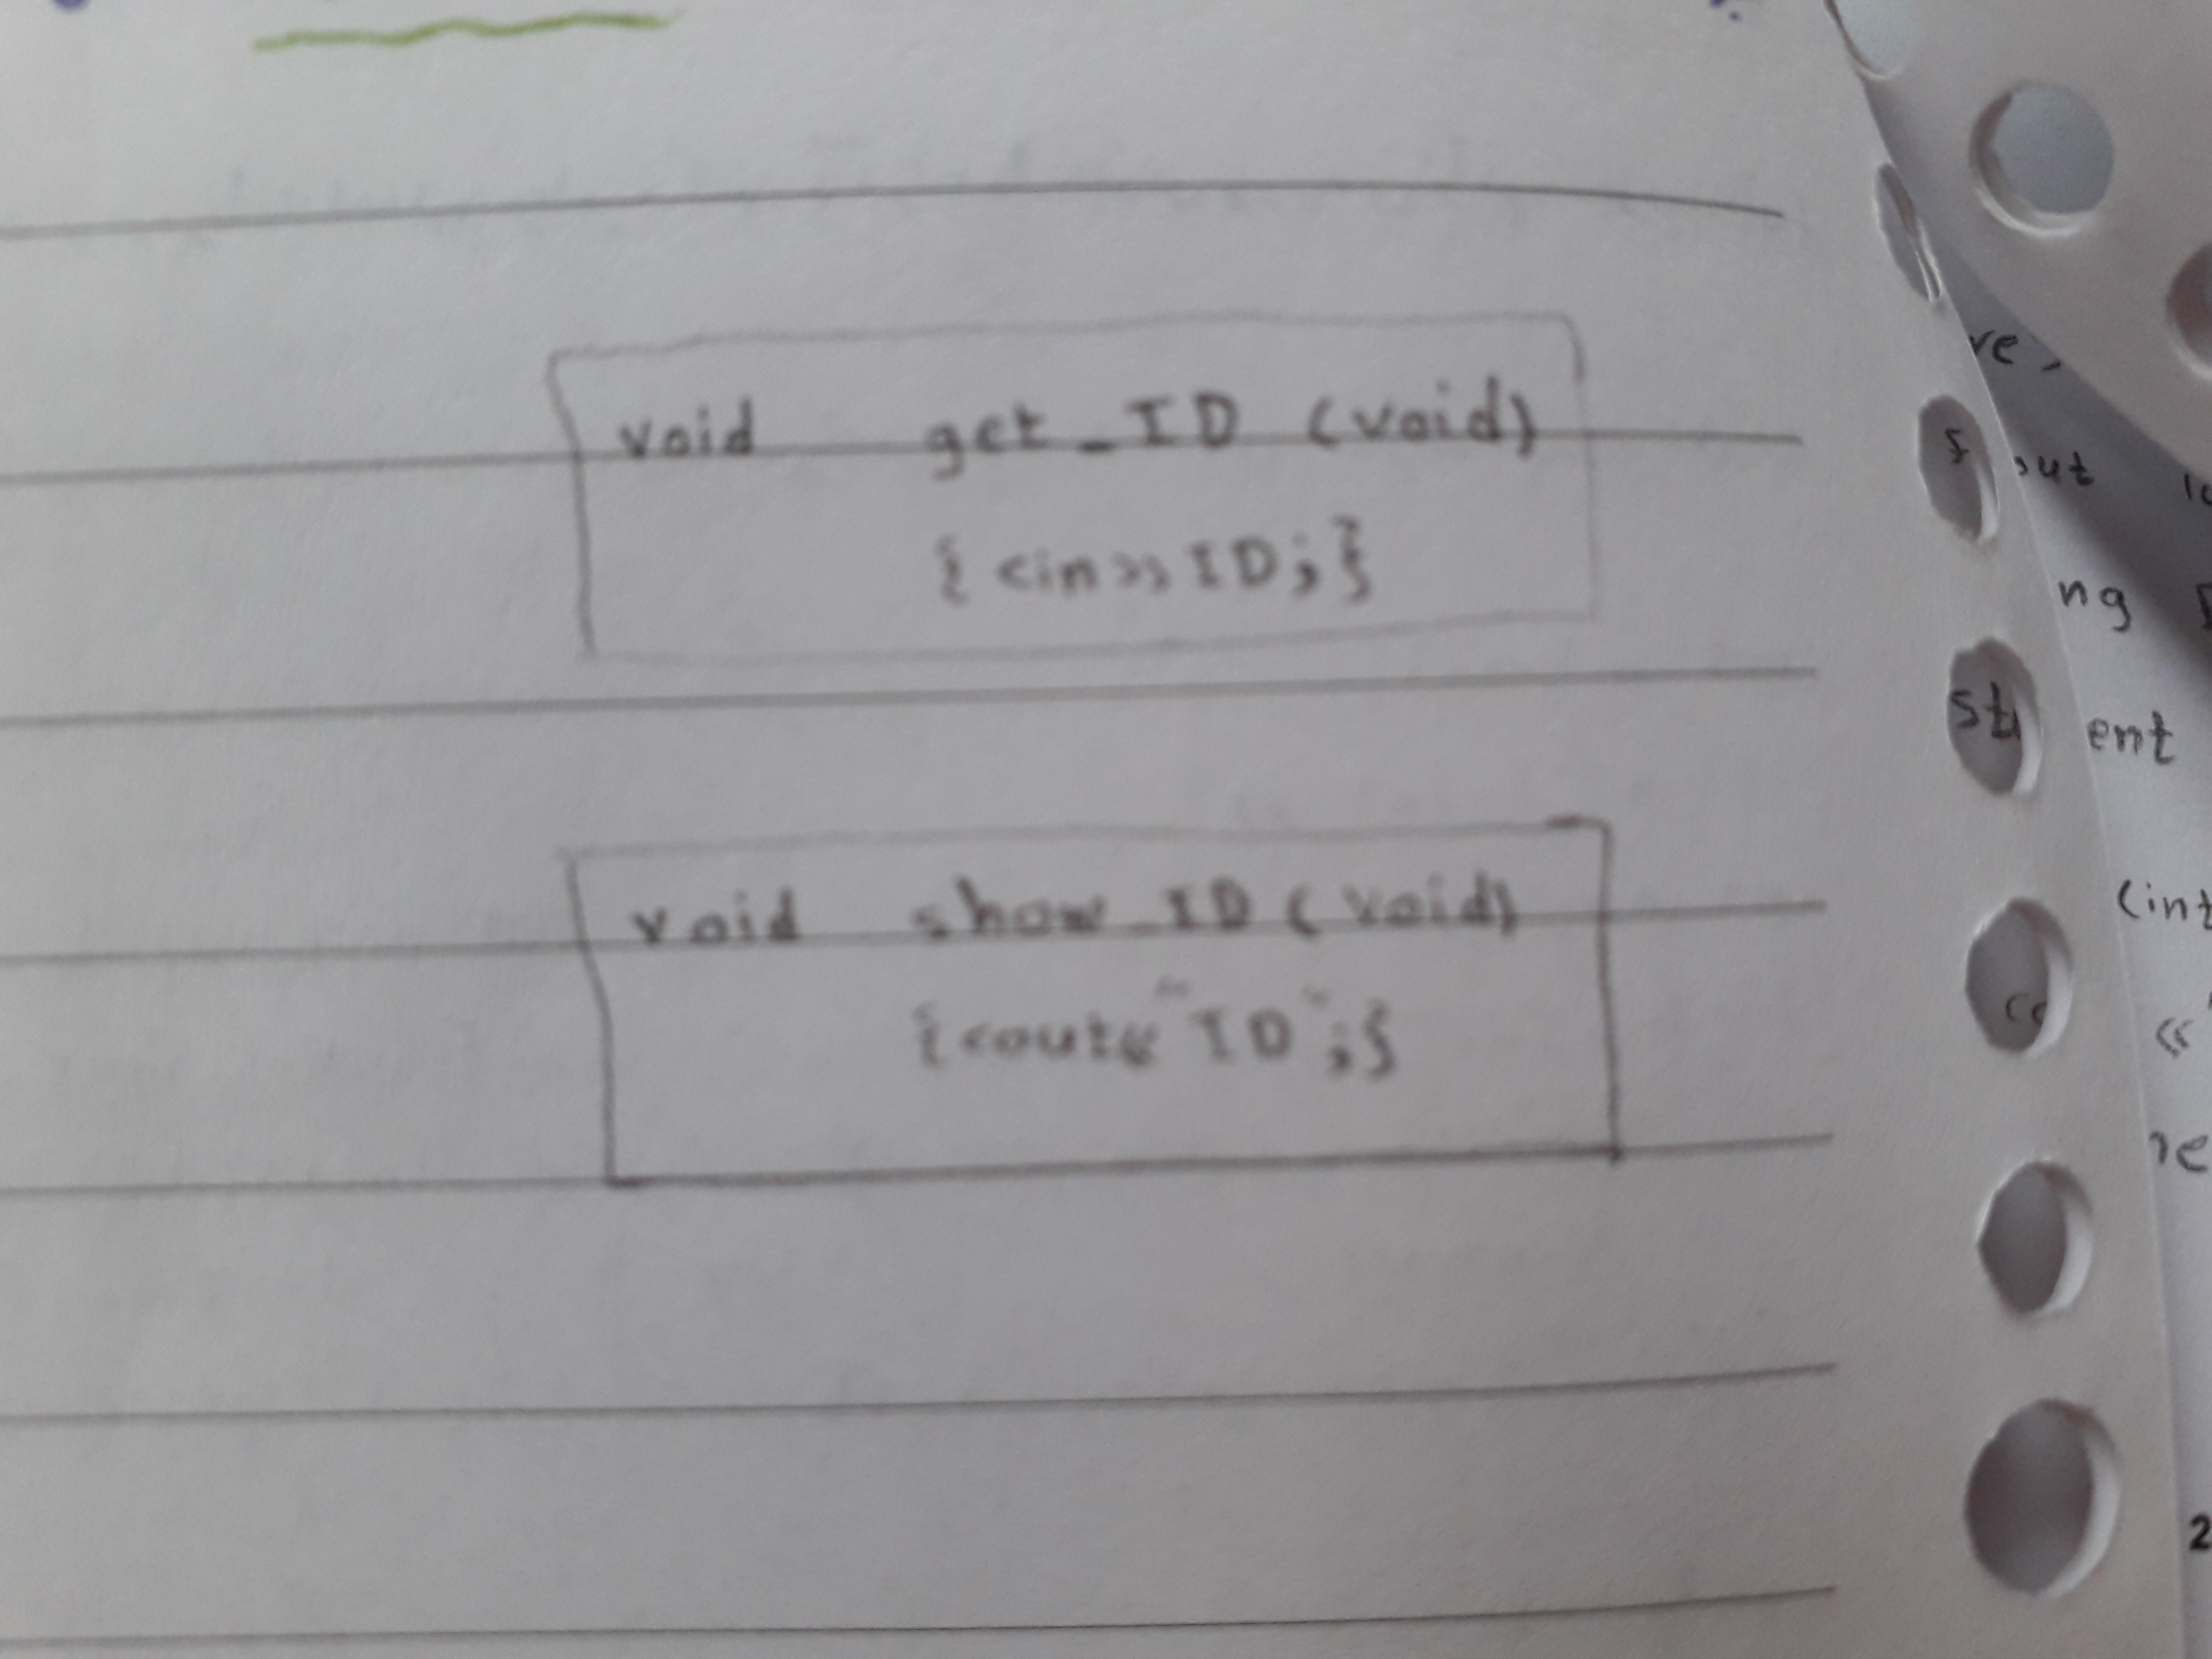 void get_ID (void)
{cin>>ID;}
void show_ID (void)
{cout<<"ID";}
out
ng
st ent
(int
<<
2